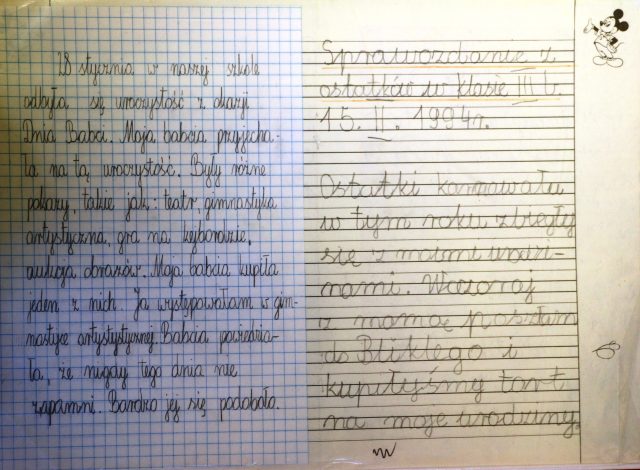 28 stycznia w naszej szkole
odbyła się uroczystość z okazji
Dnia Babci. Moja babcia przyjecha-
ła na tą uroczystość. Były różne
pokazy, takie jak: teatr, gimnastyka
artystyczna, gra na keyboardzie,
aukcja obrazów. Moja babcia kupiła
jeden z nich. Ja występowałam w gim-
nastyce artystystycznej. Babcia powiedzia-
ła, że nigdy tego dnia nie
zapomni. Bardzo jej się podobało.
Sprawozdanie z
ostatków w klasie III b.
15. II. 1994r.
Ostatki karnawału
w tym roku zbiegły
się z moimi urodzi-
nami. Wczoraj
z mamą poszłam
do Bliklego i
kupiłyśmy tort
na moje urodziny.